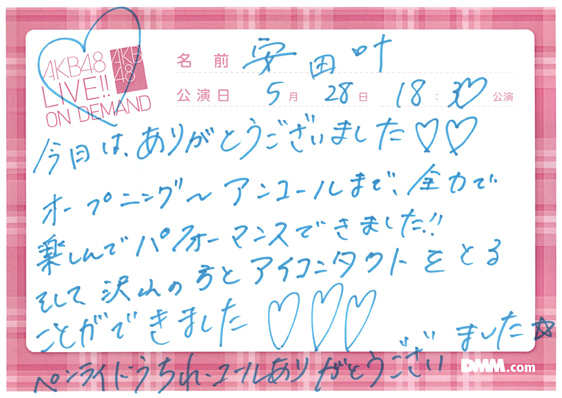 AKB48
LIVE!!
ON DEMAND
AKB
48
名前 安田叶
公演日 5月28日 18:30公演
今日は、ありがとうございました♡♡
オープニング〜アンコールまで、全力で
楽しんでパフォーマンスできました!!
そして沢山の方とアイコンタクトをとる
ことができました♡♡♡
ペンライト、うちわ、コールありがとうございました☆
DMM.com